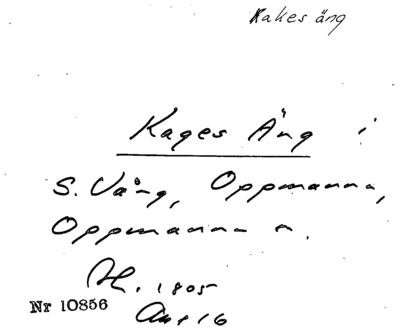 Kakes äng
Kages Äng i
S. Vång, Oppmanna,
Oppmanna n.
1805
Nr 10856
16